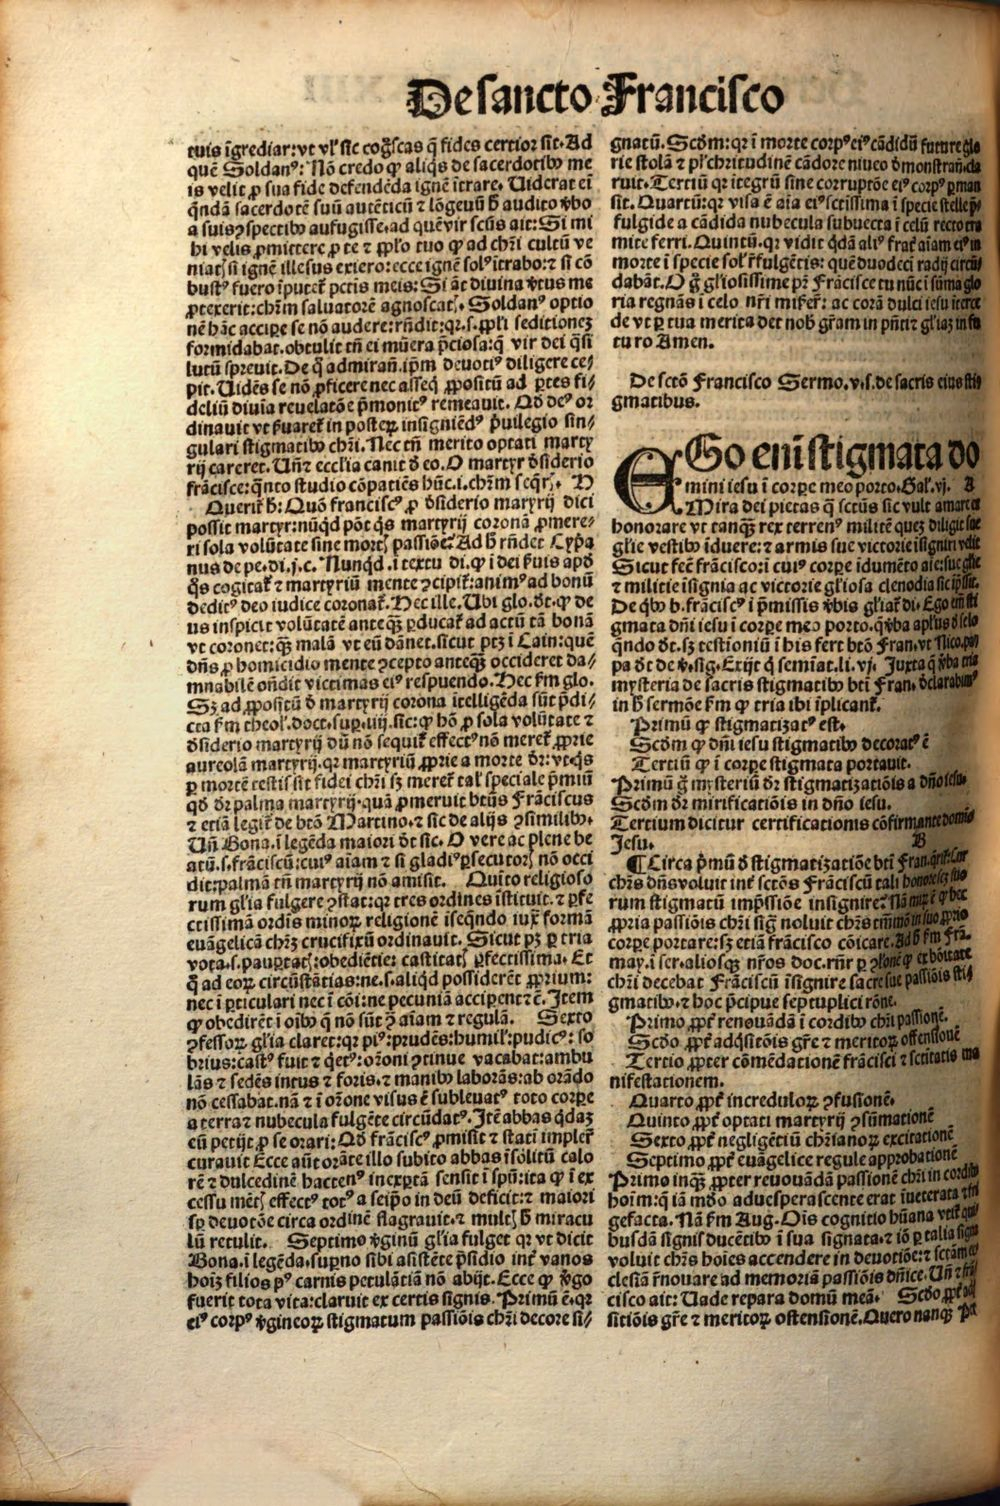 De sancto Francisco
tuis īgrediar: vt vl' sic cog̃scas q̃ fides certior sit. Ad
quē Soldanꝰ: Nō credo ꝙ aliq̃s de sacerdotibꝰ me
is velit ꝓ sua fide defendēda ignē ītrare. Uiderat eī
q̃ndā sacerdotē suū autēticū ⁊ lōgeuū h̄ audito v̄bo
a suis ꝯspectibꝰ aufugisse. ad quē vir scūs ait: Si mi
hi velis ꝓmittere ꝓ te ⁊ ꝓplo tuo ꝙ ad chr̄i cultū ve
niatꝭ si ignē illesus exiero: ecce ignē solꝰ ītrabo: ⁊ si cō
bustꝰ fuero īputet᷑ pctīs meis: Si āt diuina v̄tus me
ꝓtexerit: chr̄m saluatorē agnoscatꝭ. Soldanꝰ optio
nē hāc accipe se nō audere: rn̄dit: qꝛ .s. ꝓpli seditionez
formidabat. obtulit tn̄ ei mūera p̄ciosa: q̄ vir dei q̄si
lutū spreuit. De q̄ admirań. ip̄m deuotiꝰ diligere ce⸗
pit. Uidēs se nō ꝓficere nec asseq̄ ꝓpositū ad ꝑtes fi⸗
deliū diuīa reuelatōe p̄monitꝰ remeauit. Qd̄ deꝰ or
dinauit vt p̄uaret᷑ in posteꝝ insigniēdꝰ p̄uilegio sin⸗
gulari stigmatibꝰ chr̄i. Nec tn̄ merito optati marty
rij careret. Uñ ⁊ ecclīa canit d̄ eo. O martyr d̄siderio
frācisce: q̄nto studio cōpatiēs hūc .i. chr̄m seq̄rꝭ. D
Querit᷑ h̄: Quō franciscꝰ ꝓ d̄siderio martyrij dici
possit martyr: nūqd̄ pōt q̄s martyrij coronā ꝓmere⸗
ri sola volūtate sine mortꝭ passiōe? Ad h̄ rn̄det Cypa
nus de pe. di. j. c. Nunqd̄ .i textu di. ꝙ ī dei ẜuis apd̄
q̄s cogitat᷑ ⁊ martyriū mente ꝯcipit᷑: animꝰ ad bonū
deditꝰ deo iudice coronat᷑. Hec ille. Ubi glo. dt. ꝙ de
us inspicit volūtatē anteqꝫ ꝑducat᷑ ad actū tā bonā
vt coronet: qꝫ malā vt eū dānet. sicut ptꝫ ī Cain: quē
dn̄s ꝓ homicidio mente ꝯcepto anteqꝫ occideret da⸗
mnabilē on̄dit victimas eiꝰ respuendo. Hec ẜm glo.
Sꝫ ad ꝓpositū d̄ martyrij corona ītelligēda sūt p̄di⸗
cta ẜm theol'. doct. suꝑ .iiij. sic: ꝙ hō ꝓ sola volūtate ⁊
d̄siderio martyrij dū nō sequit᷑ effectꝰ nō meret᷑ ꝓprie
aureolā martyrij. qꝛ martyriū ꝓprie a morte dr̄: vt. q̄s
ꝑ mortē testis sit fidei chr̄i sꝫ meret᷑ tal' speciale p̄miū
qd̄ dr̄ palma martyrij. quā ꝓmeruit btūs Frāciscus
⁊ etiā legit᷑ de btō Martino. ⁊ sic de alijs ꝯsimilibꝰ.
Uñ Bona. ī legēda maiori dt sic. O vere ac plene be
atū .s. frāciscū: cuiꝰ aīam ⁊ si gladiꝰ ꝑsecutorꝭ nō occi
dit: palmā tn̄ martyrij nō amisit. Quīto religioso
rum gl'ia fulgere ꝯstat: qꝛ tres ordines īstituit. ⁊ ꝑfe
ctissimā ordīs minoꝝ religionē īseq̄ndo iuxᷓ formā
euāgelicā chr̄i crucifixū ordinauit. Sicut pꝫ ꝑ tria
vota. s. pauꝑtatꝭ: obediētie: castitatꝭ ꝑfectissima. Et
q̄ ad eoꝝ circūstātias: ne .s. aliqd̄ possiderēt ꝓprium:
nec ī ꝑticulari nec ī cōi: ne pecuniā acciperent ⁊c̄. Item
ꝙ obedirēt ī oībꝰ q̄ nō sūt ꝯ aīam ⁊ regulā. Sexto
ꝯfessoꝝ gl'ia claret: qꝛ piꝰ: prudēs: humil': pudicꝰ: so
brius: castꝰ fuit ⁊ q̄etꝰ: orōni ꝯtinue vacabat: ambu
lās ⁊ sedēs intus ⁊ foris. ⁊ manibꝰ laborās: ab orādo
nō cessabat. nā ⁊ ī orōne visus ē subleuatꝰ toto corꝑe
a terra ⁊ nubecula fulgēte circūdatꝰ. Itē abbas q̄daz
eū petijt ꝓ se orari: Qd̄ frāciscꝰ ꝓmisit ⁊ statī implet᷑
curauit Ecce aūt orāte illo subito abbas īsōlitū calo
rē ⁊ dulcedinē hactenꝰ inexꝑtā sensit ī spū: ita ꝙ ī ex
cessu mētꝭ effectꝰ totꝰ a seip̄o in deū deficit: ⁊ maiori
sꝑ deuotōe circa ordinē flagrauit. ⁊ multꝭ h̄ miracu
lū retulit. Septimo v̄ginū gl'ia fulget qꝛ vt dicit
Bona. ī legēda. suꝑno sibi asistēte p̄sidio int᷑ vanos
hoīz filios pꝰ carnis petulātiā nō abijt. Ecce ꝙ v̄go
fuerit tota vita: claruit ex certis signis. Primū ē. qꝛ
eiꝰ corpꝰ v̄gineoꝝ stigmatum passiōis chr̄i decore si⸗
gnatū. Scd̄m: qꝛ ī morte corpꝰ eiꝰ cādidū future glo
rie stolā ⁊ pl'chritudinē cādore niueo d̄monstrań. cla
ruit. Tertiū qꝛ ītegrū sine corruptōe eiꝰ corpꝰ ꝑman
sit. Quartū: qꝛ visa ē aīa eiꝰ sctīssima ī specie stelle p̄
fulgide a cādida nubecula subuecta ī celū recto tra
mite ferri. Quintū. qꝛ vidit q̄dā aliꝰ frat᷑ aīam eiꝰ in
morte ī specie sol' r̄fulgētis: quē duodecī radij circū
dabāt. O g̊ gl'iosissime pr̄ Frācisce tu nūc ī sūma glo
ria regnās ī celo nr̄i miser᷑: ac corā dulci iesu ītercede
de vt ꝑ tua merita det nob̄ gr̄am in pn̄ti ⁊ gl'iaz in fu
turo Amen.
De sctō Francisco Sermo .v. s. de sacris eius sti
gmatibus.
EGo eni̅ stigmata do
mini iesu ī corꝑe meo porto. Gal'. vj. A
Mira dei pietas q̄ sctūs sic vult amare et
honorare vt tanqꝫ rex terrenꝰ militē quez diligit sue
gl'ie vestibꝰ īduere: ⁊ armis sue victorie īsigniri vult
Sicut fec̄ frācisco: ī cuiꝰ corꝑe idumēto aīe: sue gl'ie
⁊ militie īsignia ac victorie gl'iosa clenodia sic īp̄ssit.
De q̄bꝰ b. frāciscꝰ ī p̄missis v̄bis gl'iat᷑ di. Ego em̄ sti
gmata dn̄i iesu ī corꝑe meo porto. q̄ v̄ba apl'us d̄ selo
q̄ndo dt. sꝫ testīoniū ī his fert btō Fran. vt Nico. pa
pa dt de v̄. sig. Exijt q̄ semīat. li. vj. Juxta q̄ v̄ba tria
mysteria de sacris stigmatibꝰ bti̅ Fran. d̄clarabimꝰ
in h̄ sermōe ẜm ꝙ tria ibi īplicant᷑.
Primū ꝙ stigmatizatꝰ est.
Scd̄m ꝙ dn̄i iesu stigmatibꝰ decoratꝰ ē
Tertiū ꝙ ī corꝑe stigmata portauit.
Primū g̊ mysteriū dr̄ stigmatizatiōis a dn̄o iesu.
Scd̄m dr̄ mirificatiōis in dn̄o iesu.
Tertium dicitur certificationis cōfirmante domīo
Jesu. B
¶ Circa p̄mū d̄ stigmatizatiōe bti̅ Fran. q̄rit᷑: Cur
chr̄s dn̄s voluit int᷑ sctōs Frāciscū tali honore scꝫ suo
rum stigmatū imp̄ssiōe insignire? Nā mir̄ ē ꝙ hec
ꝓpria passiōis chr̄i sig̃ noluit chr̄s tm̄mō in suo ꝓprio
corꝑe portare: sꝫ etiā frācisco cōicare. Ad h̄ ẜm Frā.
may. ī ser. aliosqꝫ nr̄os doc. rn̄r ꝑ ꝯclonē ꝙ ex bōitate
chr̄i decebat Frāciscū īsignire sacre sue passiōis sti⸗
gmatibꝰ. ⁊ hoc p̄cipue septuplici rōne.
Primo ꝓpt᷑ renouādā ī cordibꝰ chr̄i passionē.
Scd̄o ꝓpt᷑ adq̄sitōis gr̄e ⁊ meritoꝝ ostensionē
Tertio ꝓpter cōmēdationē frācisci ⁊ sctītatis ma
nifestationem.
Quarto ꝓpt᷑ increduloꝝ ꝯfusionē.
Quinto ꝓpt᷑ optati martyrij ꝯsūmationē
Sexto ꝓpt᷑ negligētiū chr̄ianoꝝ excitationē
Septimo ꝓpt᷑ euāgelice regule approbationē
Primo inqꝫ ꝓpter reuouādā passionē chr̄i in cordibꝰ
hoīm: q̄ iā mōdo aduesperascente erat īueterata ⁊ fri
gefacta. Nā ẜm Aug. Oīs cognitio hūana vtit᷑ qui
busdā signis ducētibꝰ ī sua signata. ⁊ iō ꝑ talia signa
voluit chr̄s hoīes accendere in devotiōe: ⁊ sctām ec
clesiā r̄nouare ad memoriā passiōis dn̄ice. Uñ ⁊ frā
cisco ait: Uade repara domū meā. Scd̄o ꝓpt᷑ adq̄
sitiōis gr̄e ⁊ meritoꝝ ostensionē. Quero nanqꝫ